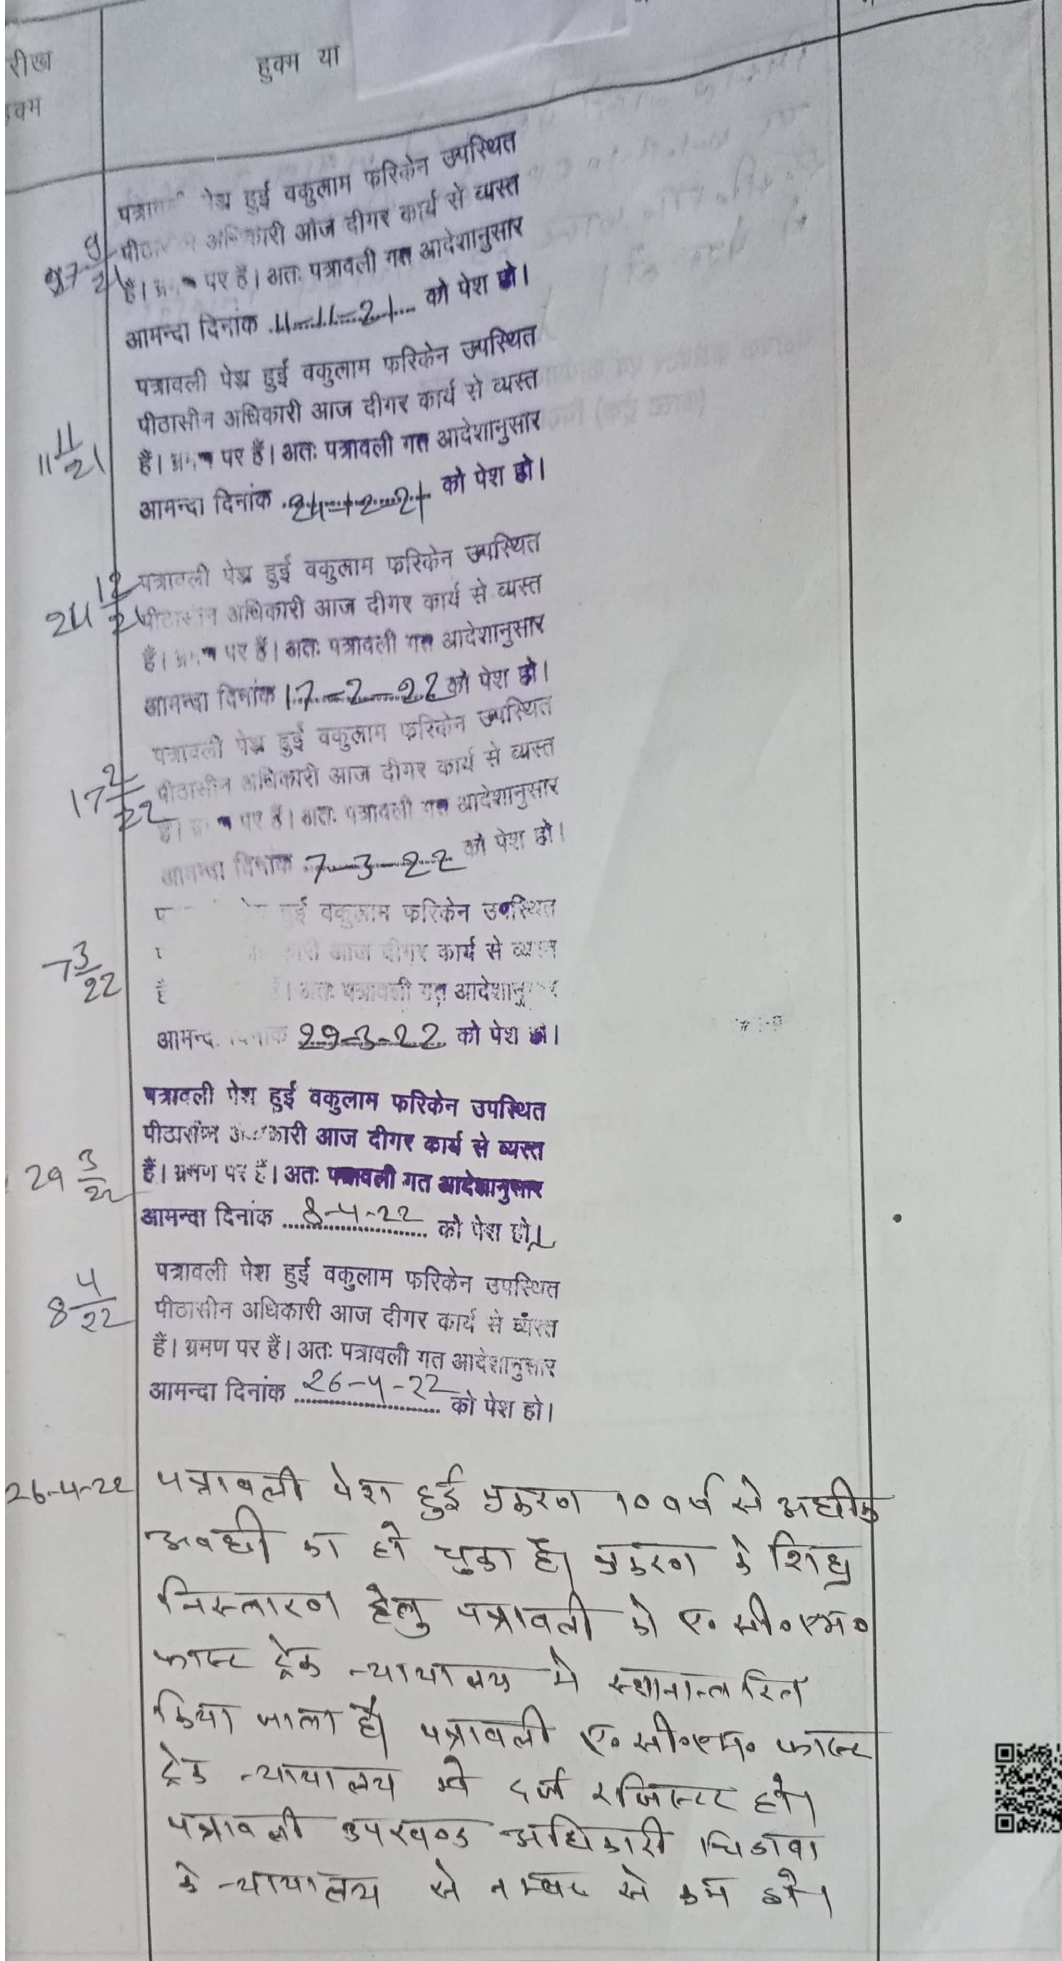 रीख
हुक्म या
क्म
पेश हुई वकुलाम फरिकेन उपस्थित
आज दीगर कार्य से व्यस्त
9
27
21
है। पर हैं। अतः पत्रावली गत आदेशानुसार
आमन्दा दिनांक 11-11-21 को पेश हो।
पत्रावली पेश हुई वकुलाम फरिकेन उपस्थित
पीठासीन अधिकारी आज दीगर कार्य से व्यस्त
11 11/21
हैं। पर हैं। अतः पत्रावली गत आदेशानुसार
आमन्दा दिनांक 24-12-21 को पेश हो।
24 12/21
पत्रावली पेश हुई वकुलाम फरिकेन उपस्थित
अधिकारी आज दीगर कार्य से व्यस्त
हैं। पर हैं। अतः पत्रावली गत आदेशानुसार
आमन्दा दिनांक 17-2-22 को पेश हो।
पत्रावली पेश हुई वकुलाम फरिकेन उपस्थित
17 2/22
पीठासीन अधिकारी आज दीगर कार्य से व्यस्त
पर हैं। अतः पत्रावली गत आदेशानुसार
आमन्दा दिनांक 7-3-22 को पेश हो।
हुई वकुलाम फरिकेन उपस्थित
7 3/22
आज दीगर कार्य से व्यस्त
है । अतः पत्रावली गत
29-3-22 को पेश हो।
पत्रावली पेश हुई वकुलाम फरिकेन उपस्थित
पीठासीन आज दीगर कार्य से व्यस्त
29 3/22
हैं। भ्रमण पर हैं। अतः पत्रावली गत आदेशानुसार
आमन्दा दिनांक 8-4-22 को पेश हो।
8 4/22
पत्रावली पेश हुई वकुलाम फरिकेन उपस्थित
पीठासीन अधिकारी आज दीगर कार्य से व्यस्त
हैं। भ्रमण पर हैं। अतः पत्रावली गत आदेशानुसार
आमन्दा दिनांक 26-4-22 को पेश हो।
26-4-22 पत्रावली पेश हुई प्रकरण 10 वर्ष से अधीक
अवधी का हो चुका है। प्रकरण के शिघ्र
निस्तारण हेतु पत्रावली को ए॰ सी॰ एम॰
फास्ट ट्रेक न्यायालय मे स्थानान्तरित
किया जाता है। पत्रावली ए॰ सी॰ एम॰ फास्ट
ट्रेक न्यायालय मे दर्ज रजिस्टर हो।
पत्रावली उपखण्ड अधिकारी चिडावा
के न्यायालय से नम्बर से कम हो।